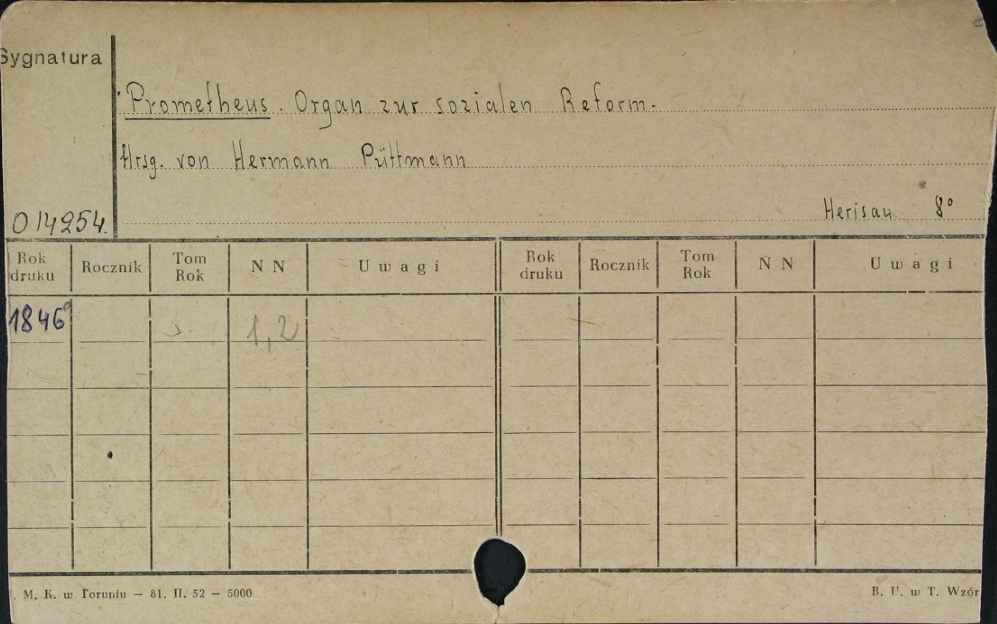 Sygnatura
Prometheus. Organ zur sozialen Reform.
Hrsg. von Hermann Püttmann
Herisau 8°
014254.
Rok druku Rocznik Tom Rok N N Uwagi Rok druku Rocznik Tom Rok N N Uwagi
1846 1,2
. M. K. w Toruniu — 81. II. 52 — 5000 B. U. w T. Wzór